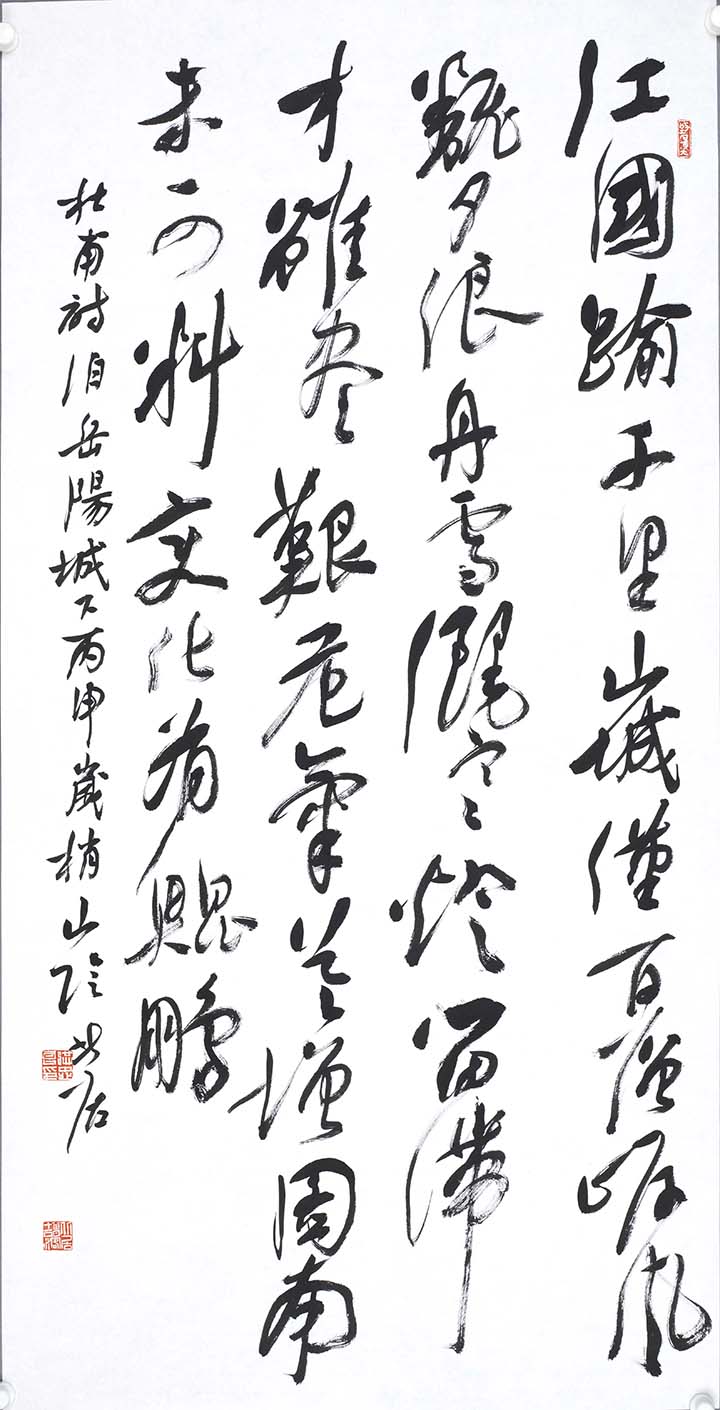 江國踰千里山城僅百層岸風
飜夕浪舟雪灑寒燈留滯
才雖盡艱危氣益增圖南
未可料變化有鯤鵬
杜甫詩泊岳陽城下丙申歲梢山陰